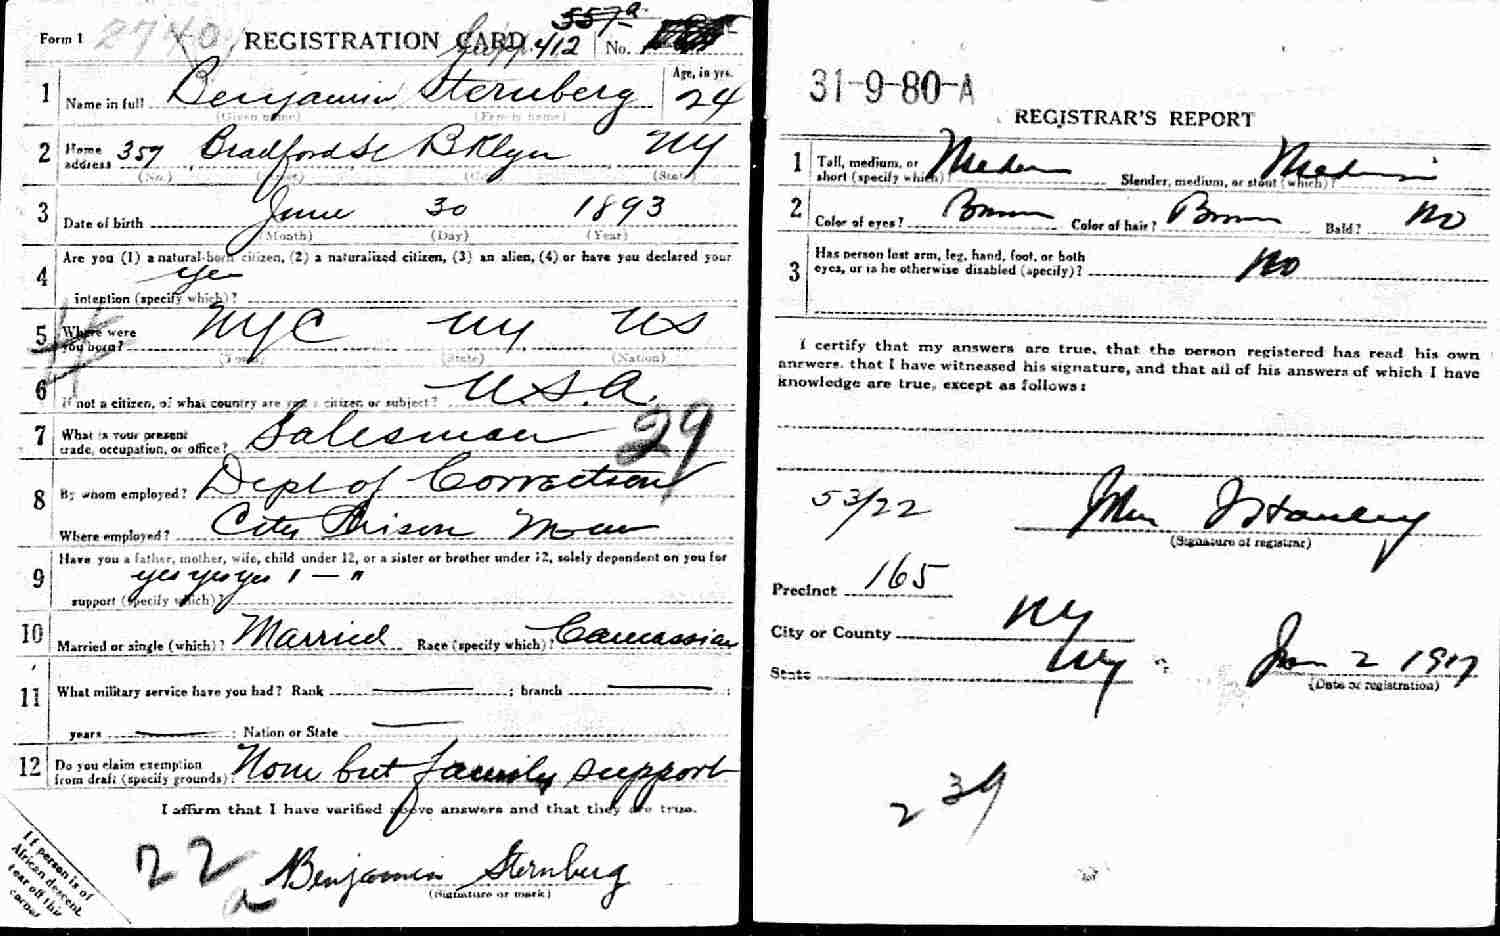 Form 1 2740 REGISTRATION CARD 412 557 a No.
1 Name in full Benjamin Sternberg Age, in yrs. 24
(Given name) (Family name)
2 Home address 357 Bradford St Bklyn NY
(No.) (Street) (City) (State)
3 Date of birth June 30 1893
(Month) (Day) (Year)
4 Are you (1) a natural-born citizen, (2) a naturalized citizen, (3) an alien, (4) or have you declared your
yes
intention (specify which)?
5 Where were you born? NYC NY US
(Town) (State) (Nation)
6 If not a citizen, of what country are you a citizen or subject? U.S.A.
7 What is your present trade, occupation, or office? Salesman 29
8 By whom employed? Dept of Correction
Where employed? City Prison
9 Have you a father, mother, wife, child under 12, or a sister or brother under 12, solely dependent on you for
yes yes yes 1 — "
support (specify which)?
10 Married or single (which)? Married Race (specify which)? Caucassian
11 What military service have you had? Rank ; branch ;
years ; Nation or State
12 Do you claim exemption from draft (specify grounds) None but family support
I affirm that I have verified above answers and that they are true.
22 a Benjamin Sternberg
(Signature or mark)
If person is of
African descent,
tear off this
corner
31-9-80-A
REGISTRAR'S REPORT
1 Tall, medium, or short (specify which)? Medium Slender, medium, or stout (which)? Medium
2 Color of eyes? Brown Color of hair? Brown Bald? No
3 Has person lost arm, leg, hand, foot, or both eyes, or is he otherwise disabled (specify)? No
I certify that my answers are true, that the person registered has read his own
answers, that I have witnessed his signature, and that all of his answers of which I have
knowledge are true, except as follows:
53/22 John
(Signature of registrar)
Precinct 165
City or County NY
State NY Jun 2 1917
(Date of registration)
239